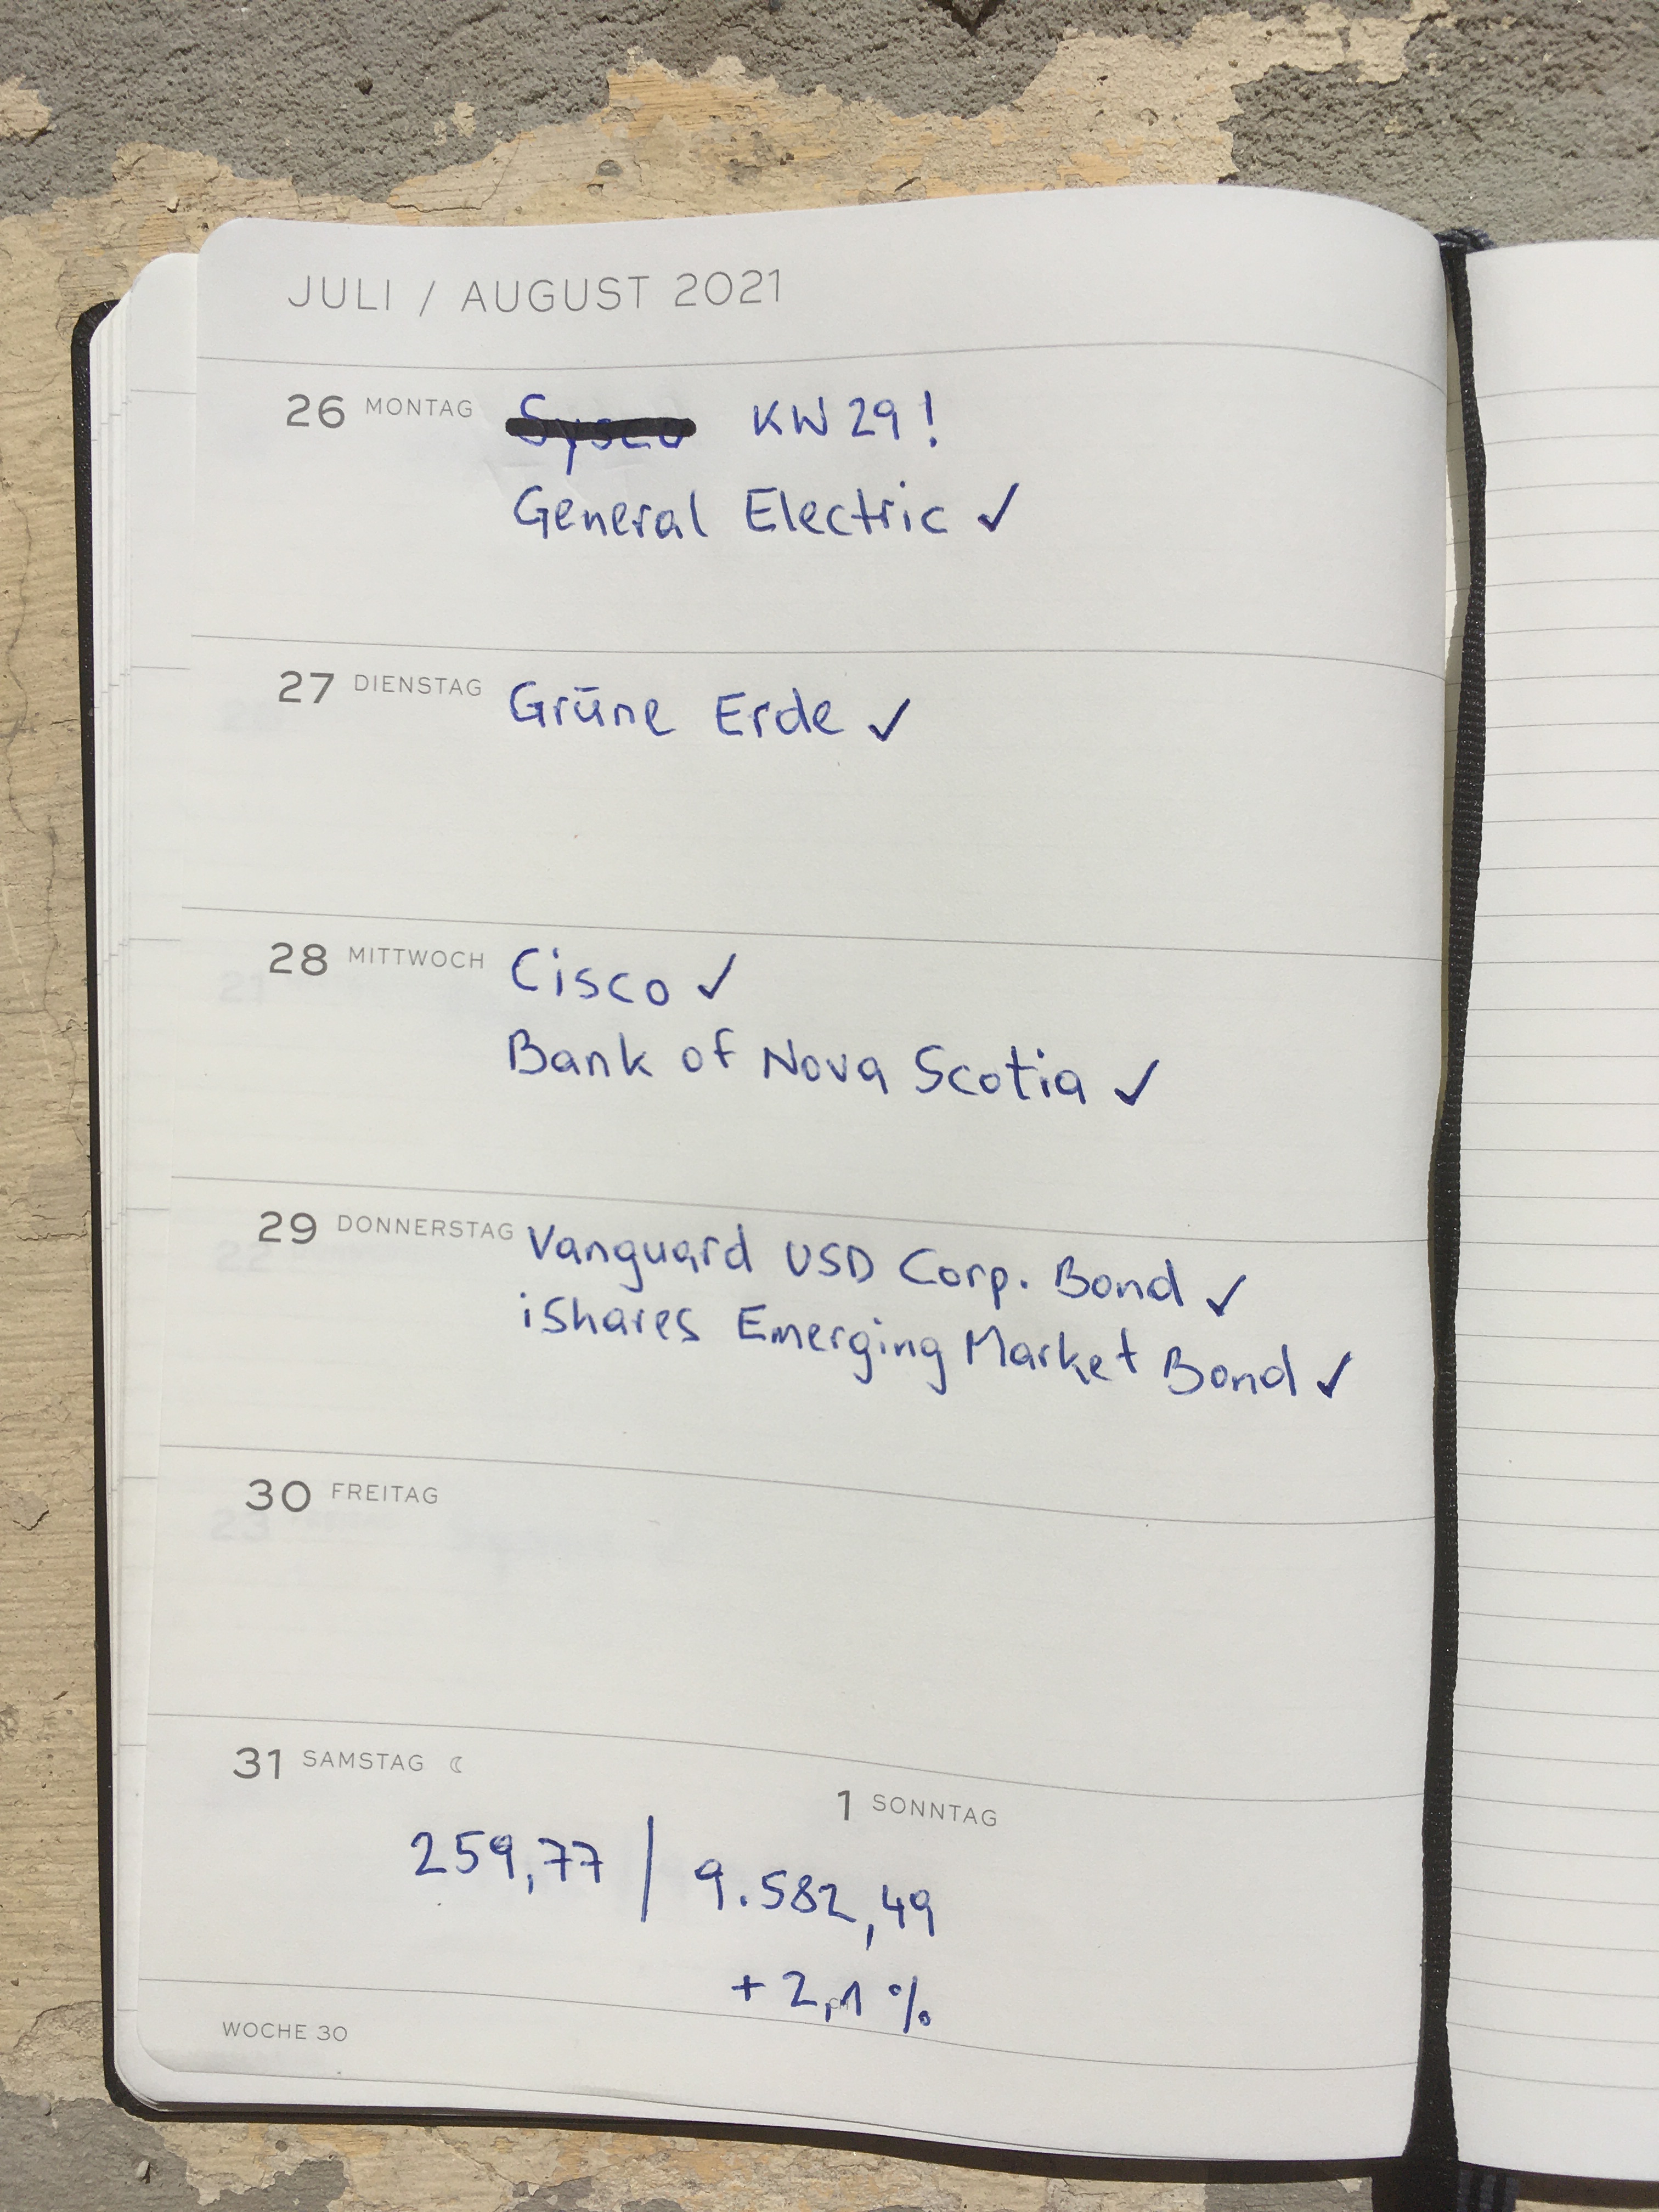 JULI / AUGUST 2021
26 MONTAG Sysco KW 29!
General Electric ✓
27 DIENSTAG Grüne Erde ✓
28 MITTWOCH Cisco ✓
Bank of Nova Scotia ✓
29 DONNERSTAG Vanguard USD Corp. Bond ✓
iShares Emerging Market Bond ✓
30 FREITAG
31 SAMSTAG ☾
1 SONNTAG
259,77 / 9.582,49
+2,1 %
WOCHE 30